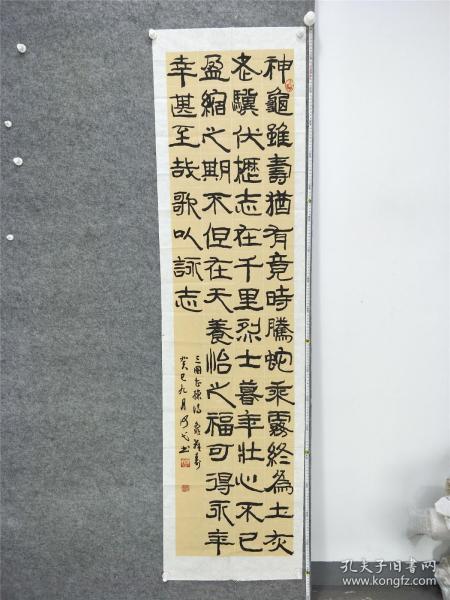 神龜雖壽猶有竟時騰蛇乘霧終為土灰
老驥伏櫪志在千里烈士暮年壯心不已
盈縮之期不但在天養怡之福可得永年
幸甚至哉歌以詠志
三国曹操诗龟雖寿
癸巳九月书
孔夫子旧书网
www.kongfz.com